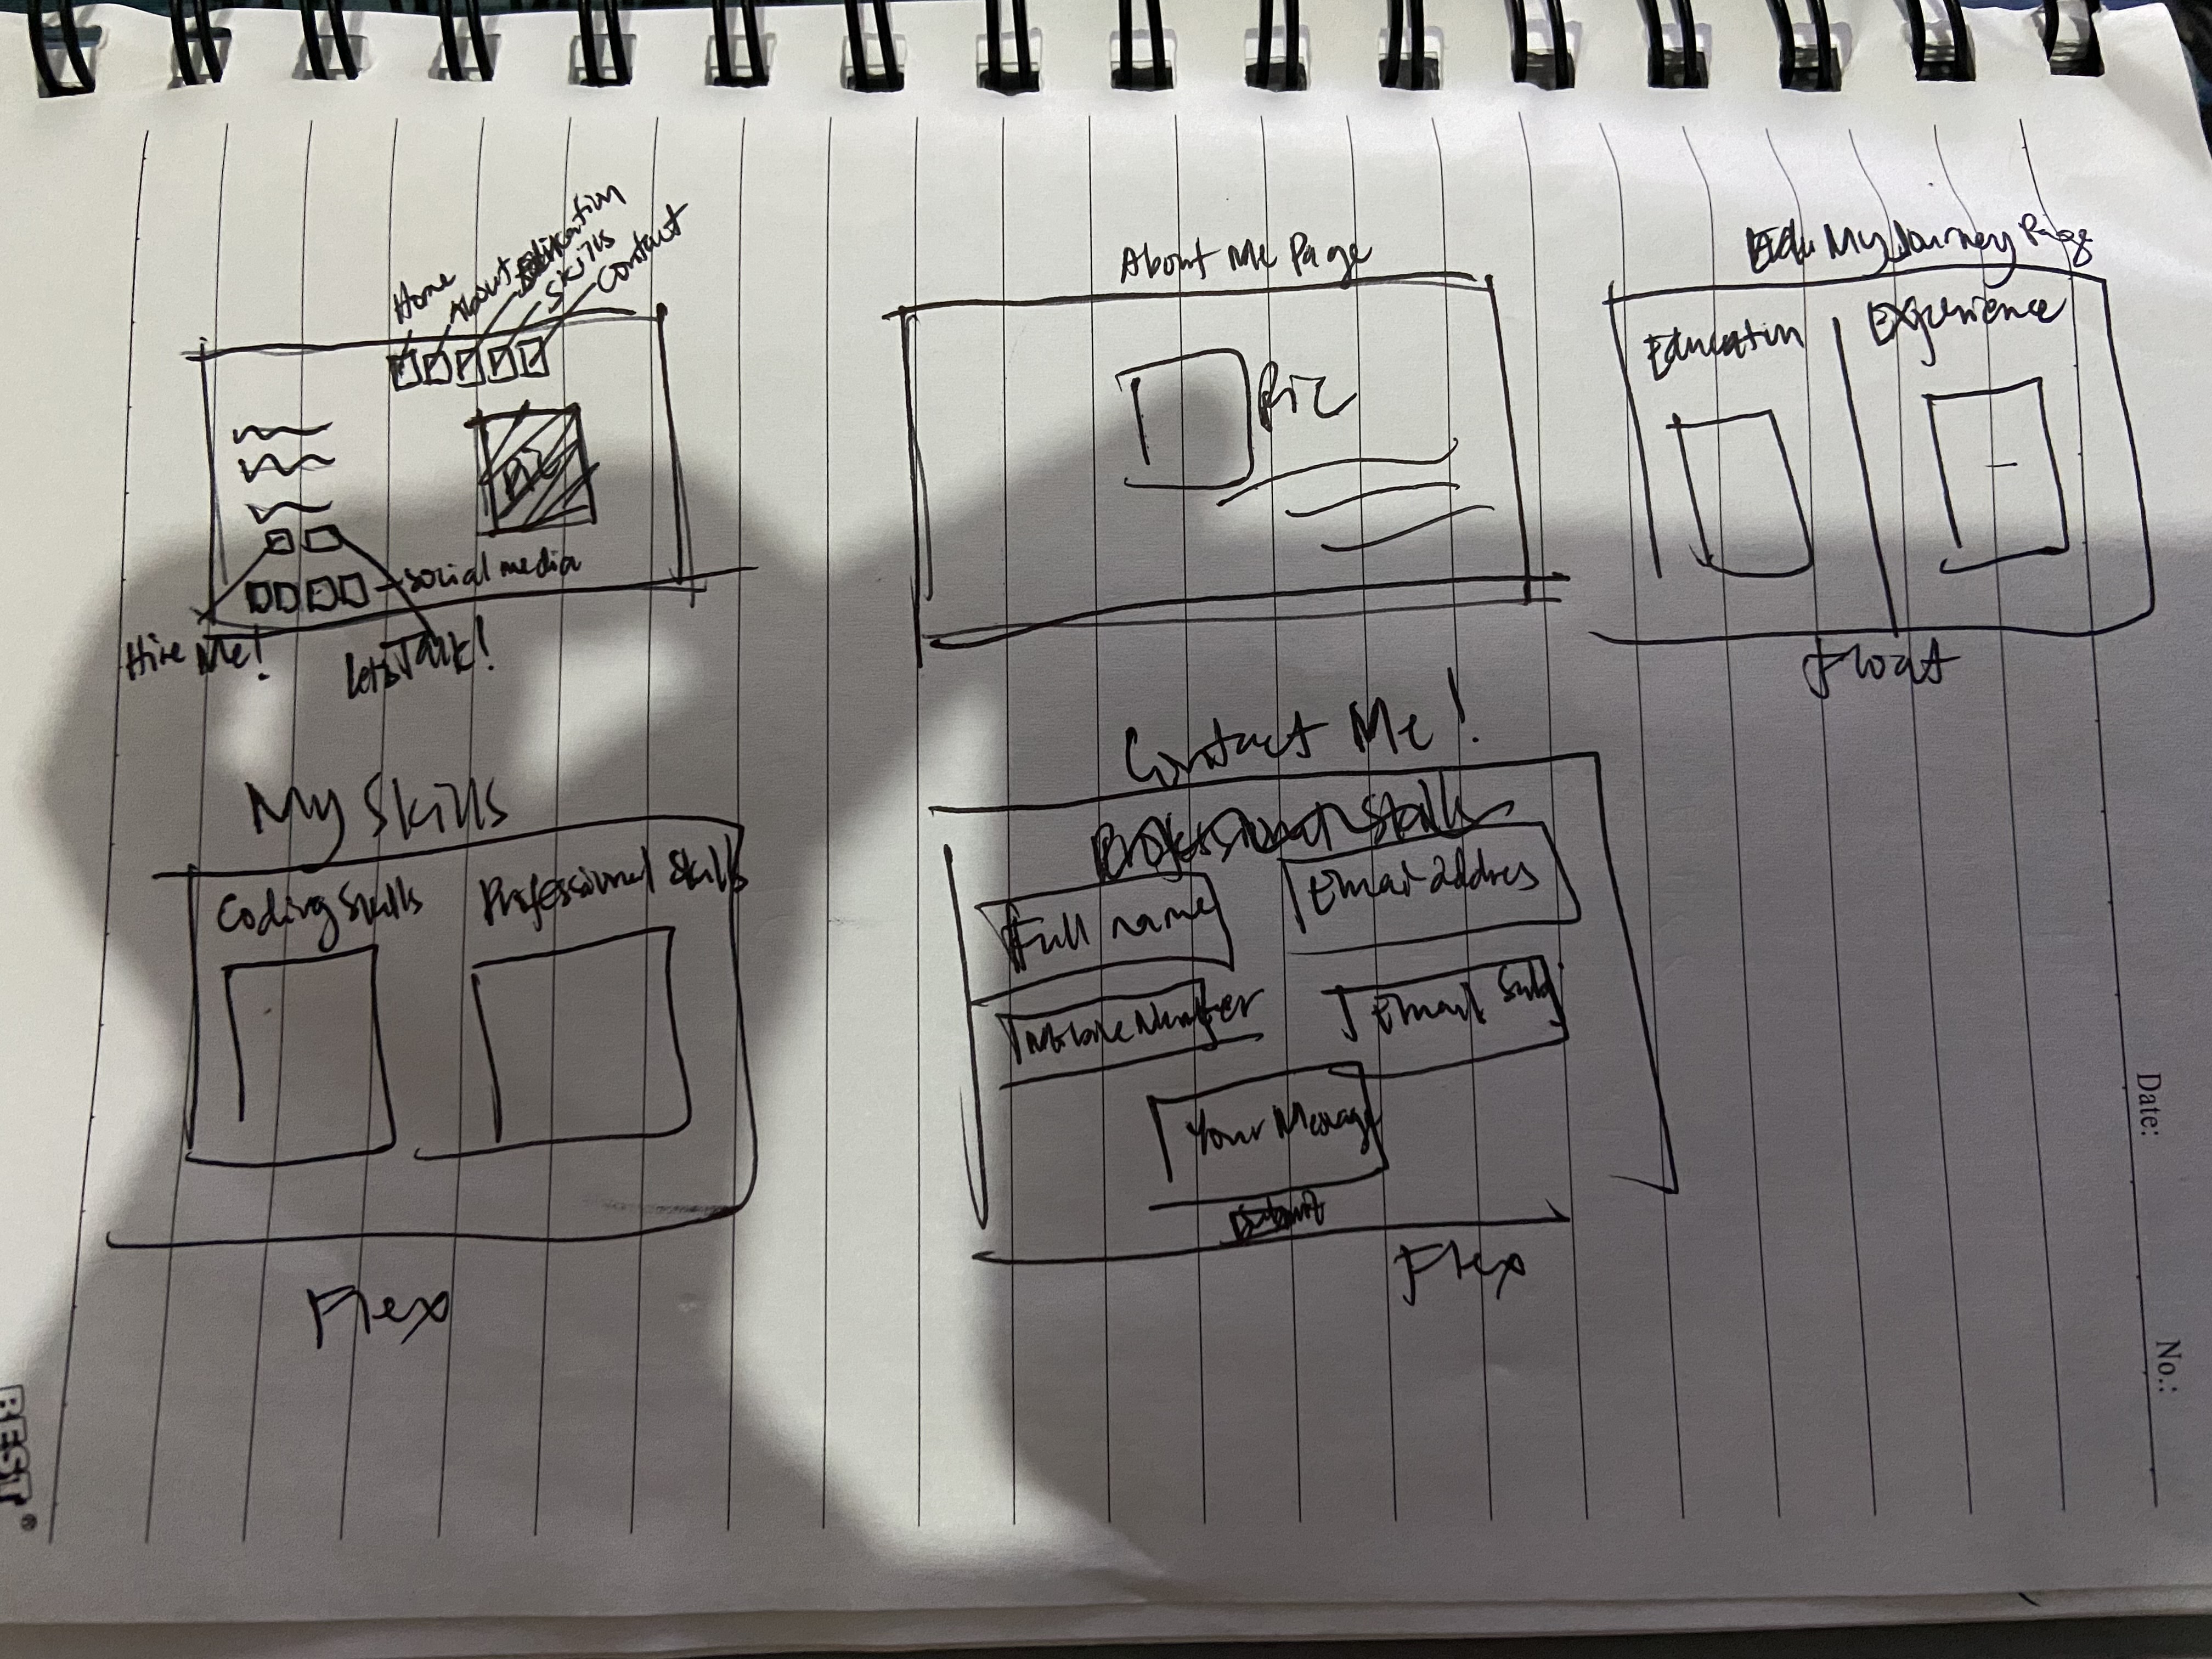 Home
About
Education
Skills
Contact
Pic
social media
Hire Me!
Lets Talk!
About Me Page
Pic
My Journey Page
Education
Experience
Float
My Skills
Coding Skills
Professional Skills
Flex
Contact Me!
Professional Skills
Full name
Email address
Mobile Number
Email Subj
Your Message
Submit
Flex
Date:
No.:
BEST®